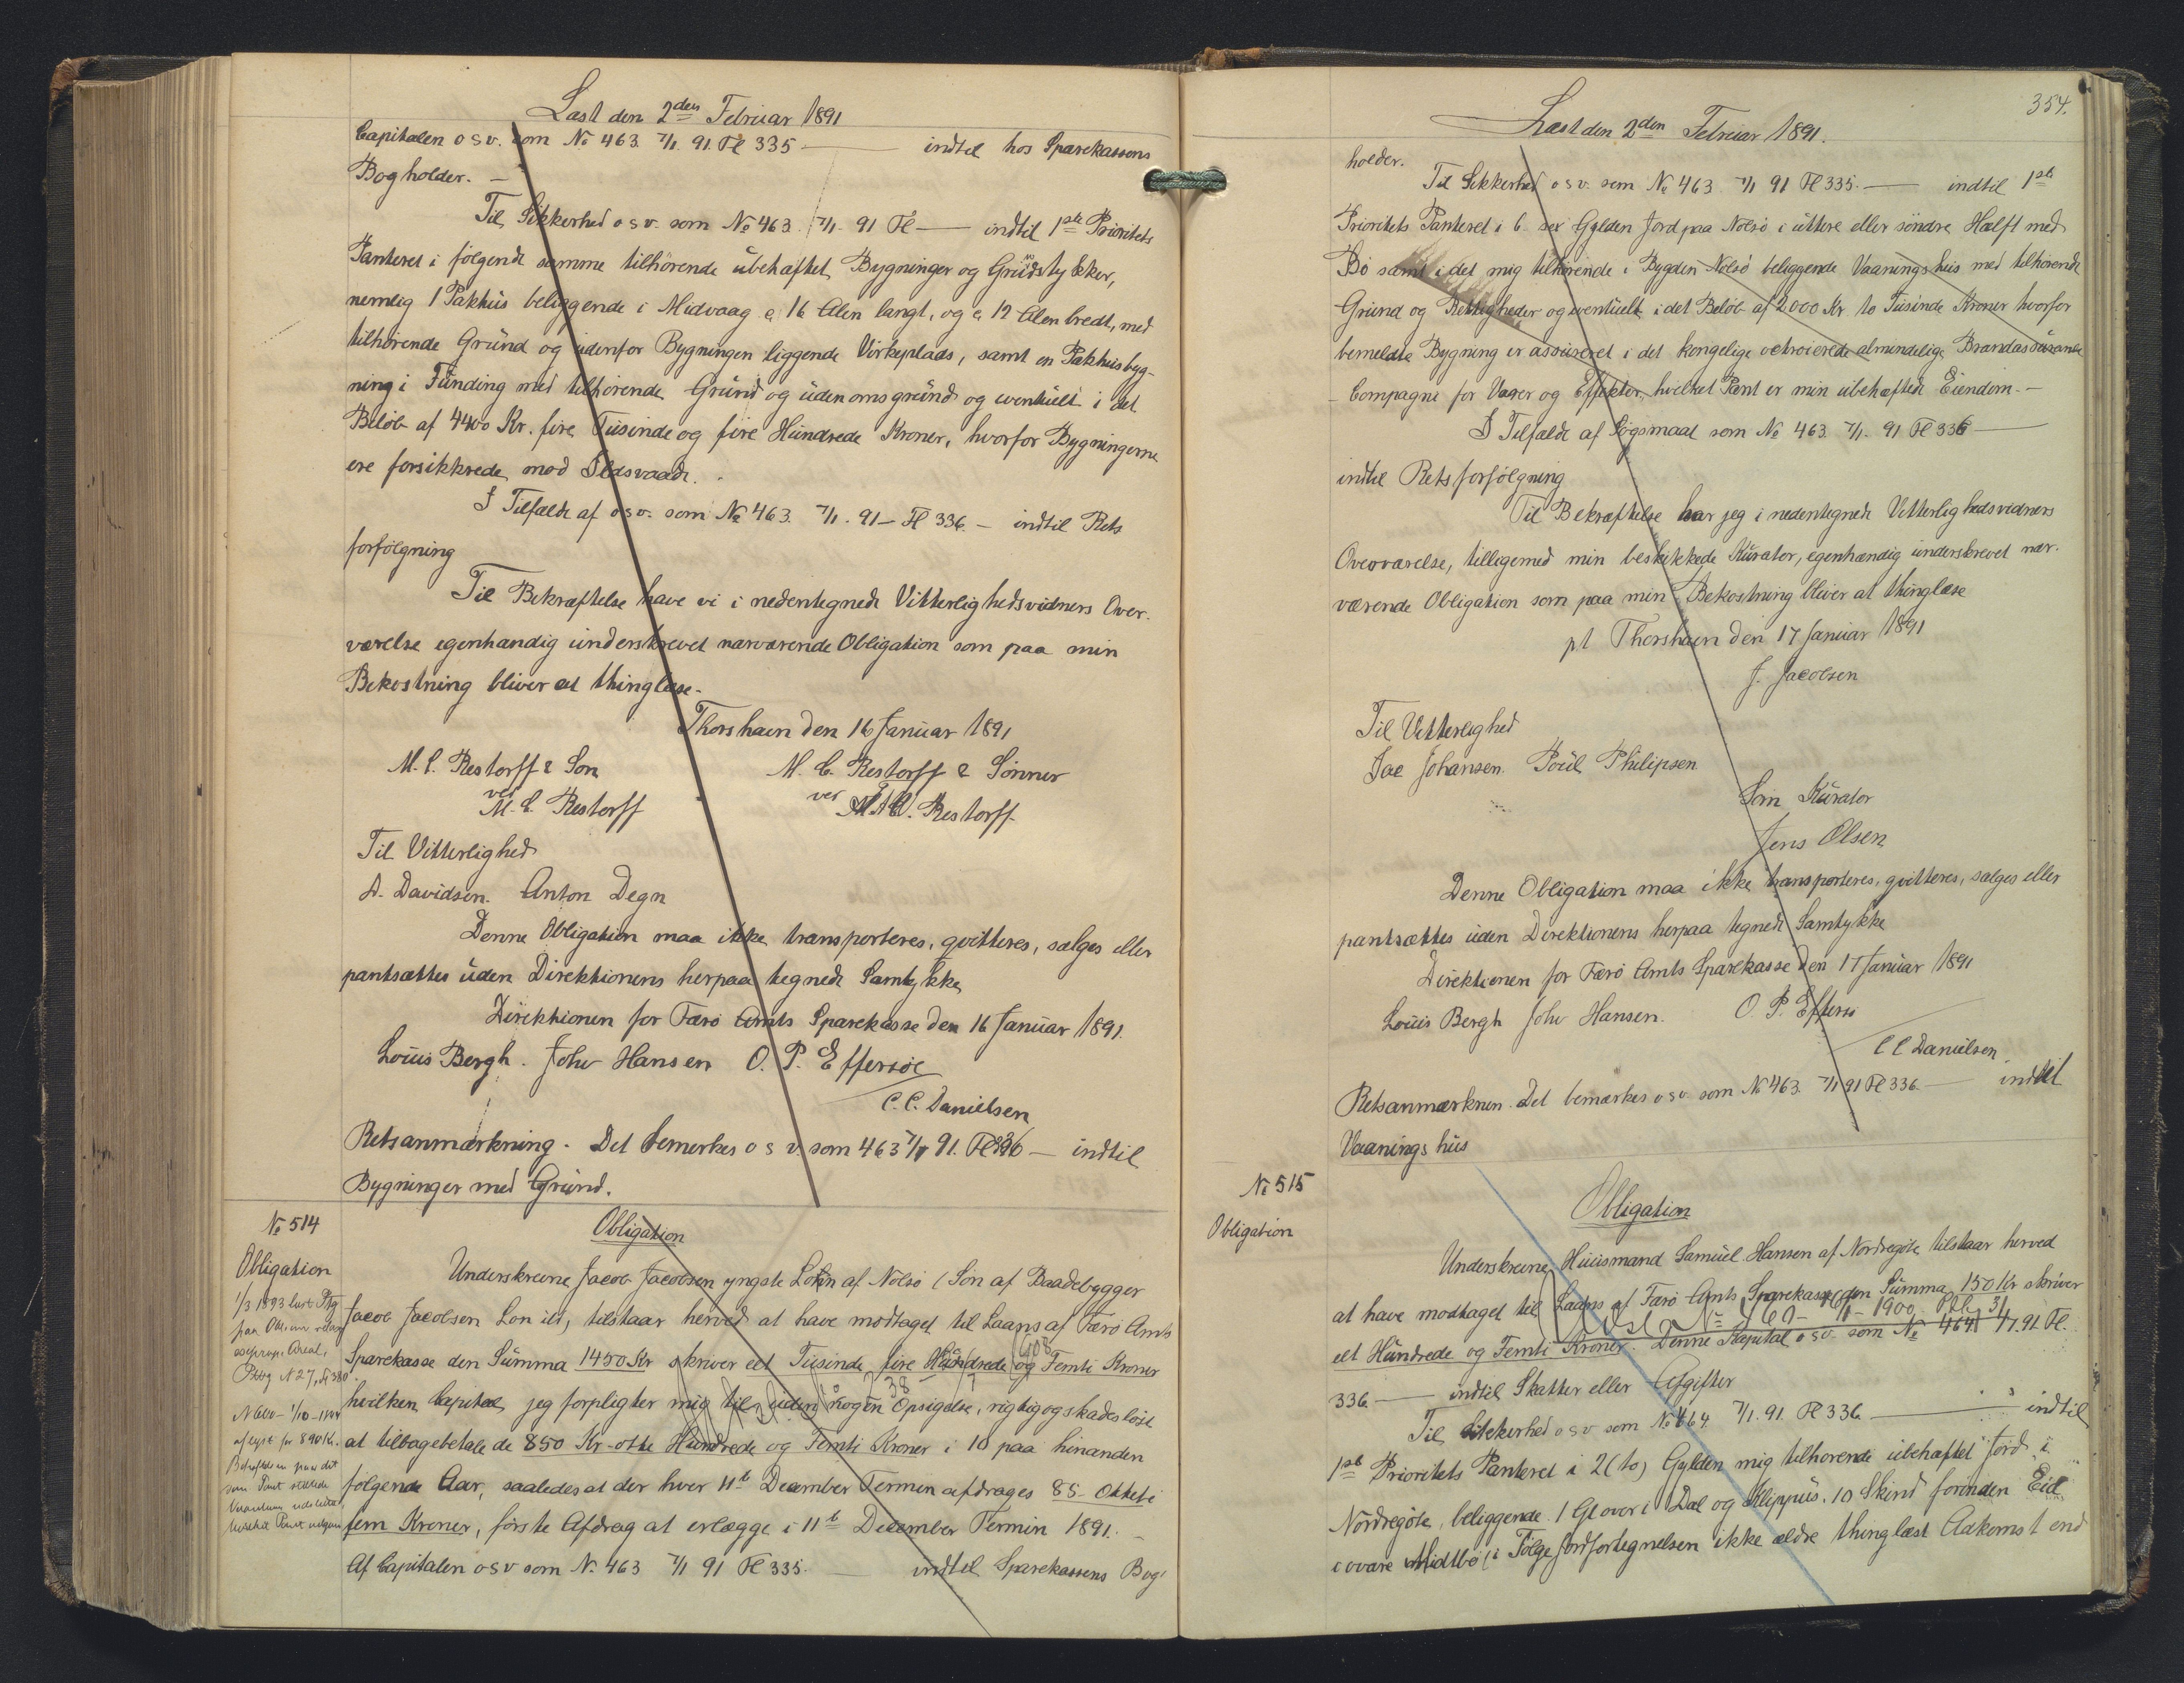 Læst den 2den Februar 1891
Capitalen o s v. som No 463. 7/1. 91. Fl 335 — indtil hos Sparekassens
Bogholder. —
Til Sikkerhed o s v. som No 463. 7/1. 91 Fl — indtil 1ste Prioritets
Panteret i følgende samme tilhørende ubehæftet Bygninger og
nemlig 1 Pakhus beliggende i Midvaag a 16 Alen langt, og a 12 Alen bredt, med
tilhørende Grund og udenfor Bygningen liggende Virkeplads, samt en Pakhusbyg-
ning i Funding med tilhørende Grund og udenomsgrund og eventuelt i det
Beløb af 4400 Kr. fire Tusinde og fire Hundrede Kroner, hvorfor Bygningerne
ere forsikkrede mod Ildsvaade.
I Tilfælde af o s v. som No 463. 7/1. 91 — Fl 336 — indtil Rets
forfølgning
Til Bekræftelse have vi i nedentegnede Vitterlighedsvidners Over-
værelse egenhændig underskrevet nærværende Obligation som paa min
Bekostning bliver at thinglæse.
Thorshavn den 16 Januar 1891
M. C. Restorff & Søn M. C. Restorff & Sønner
ved M. C. Restorff ved Restorff
Til Vitterlighed
D. Davidsen. Anton Degn
Denne Obligation maa ikke transporteres, qvitteres, sælges eller
pantsættes uden Direktionens herpaa tegnede Samtykke
Direktionen for Færø Amts Sparekasse den 16 Januar 1891.
Louis Bergh. Johs Hansen O. P. Effersøe
C. C. Danielsen
Retsanmærkning. Det bemerkes o s v. som 463 7/1 91. Fl 336 — indtil
Bygninger med Grund.
No 514
Obligation
Obligation
Underskrevne Jacob Jacobsen yngste Lon af Nolsø (Søn af Baadebygger
Jacob Jacobsen Lon ild, tilstaar herved at have modtaget til Laans af Færø Amts
Sparekasse den Summa 1450 Kr skriver eet Tusinde fire Hundrede og Femti Kroner
hvilken Capital jeg forpligter mig til uden nogen Opsigelse, rigtig og skadesløst
at tilbagebetale de 850 Kr. otte Hundrede og Femti Kroner i 10 paa hinanden
følgende Aar, saaledes at der hver 11te December Termin afdrages 85. Otteti
fem Kroner, første Afdrag at erlægge i 11te December Termin 1891. —
Af Capitalen o s v som No 463 7/1 91 Fl 335. — indtil Sparekassens Bog
354.
Læst den 2den Februar 1891.
holder.
Til Sikkerhed o s v. som No 463. 7/1 91 Fl 335. — indtil 1ste
Prioritets Panteret i 6 sex Gylden Jord paa Nolsø i uttere eller søndre Halft med
Bø samt i det mig tilhørende i Bygden Nolsø beliggende Vaaningshus med tilhørende
Grund og Rettigheder og eventuelt i det Beløb af 2000 Kr. to Tusinde Kroner hvorfor
bemeldte Bygning er assureret i det kongelige octroierede almindelige Brandassurance
Compagni for Varer og Effekter, hvilket Pant er min ubehæftede Eiendom. —
I Tilfælde af Søgsmaal som No 463. 7/1. 91 Fl 336 —
indtil Retsforfølgning
Til Bekræftelse har jeg i nedentegnede Vitterlighedsvidners
Overværelse, tilligemed min beskikkede Kurator, egenhændig underskrevet nær-
værende Obligation som paa min Bekostning bliver at thinglæse
pt Thorshavn den 17 Januar 1891
J. Jacobsen
Til Vitterlighed
Jac Johansen. Poul Philipsen
Som Kurator
Jens Olsen
Denne Obligation maa ikke transporteres, qvitteres, sælges eller
pantsættes uden Direktionens herpaa tegnede Samtykke
Direktionen for Færø Amts Sparekasse den 17 Januar 1891
Louis Bergh Johs Hansen. O. P. Effersø
C C Danielsen
Retsanmærknin. Det bemærkes o s v som No 463. 7/1 91 Fl 336 — indtil
Vaanings hus
No 515
Obligation
Obligation
Underskrevne Huusmand Samuel Hansen af Nordregøte tilstaar herved
at have modtaget til Laans af Færø Amts Sparekasse den Summa 150 Kr skriver
eet Hundrede og Femti Kroner. Denne Kapital o s v. som No 464 7/1. 91. Fl.
336. — indtil Skatter eller Afgifter
Til Sikkerhed o s v som No 464. 7/1. 91. Fl 336. — indtil
1ste Prioritets Panteret i 2 (to) Gylden mig tilhørende ubehæftet Jord i
Nordregøte, beliggende 1 Gl over i Dal og Klippus. 10 Skind forinden Eid
i ovare Midtbø (i Følge Jordfortegnelsen ikke ældre thinglæst Adkomst end